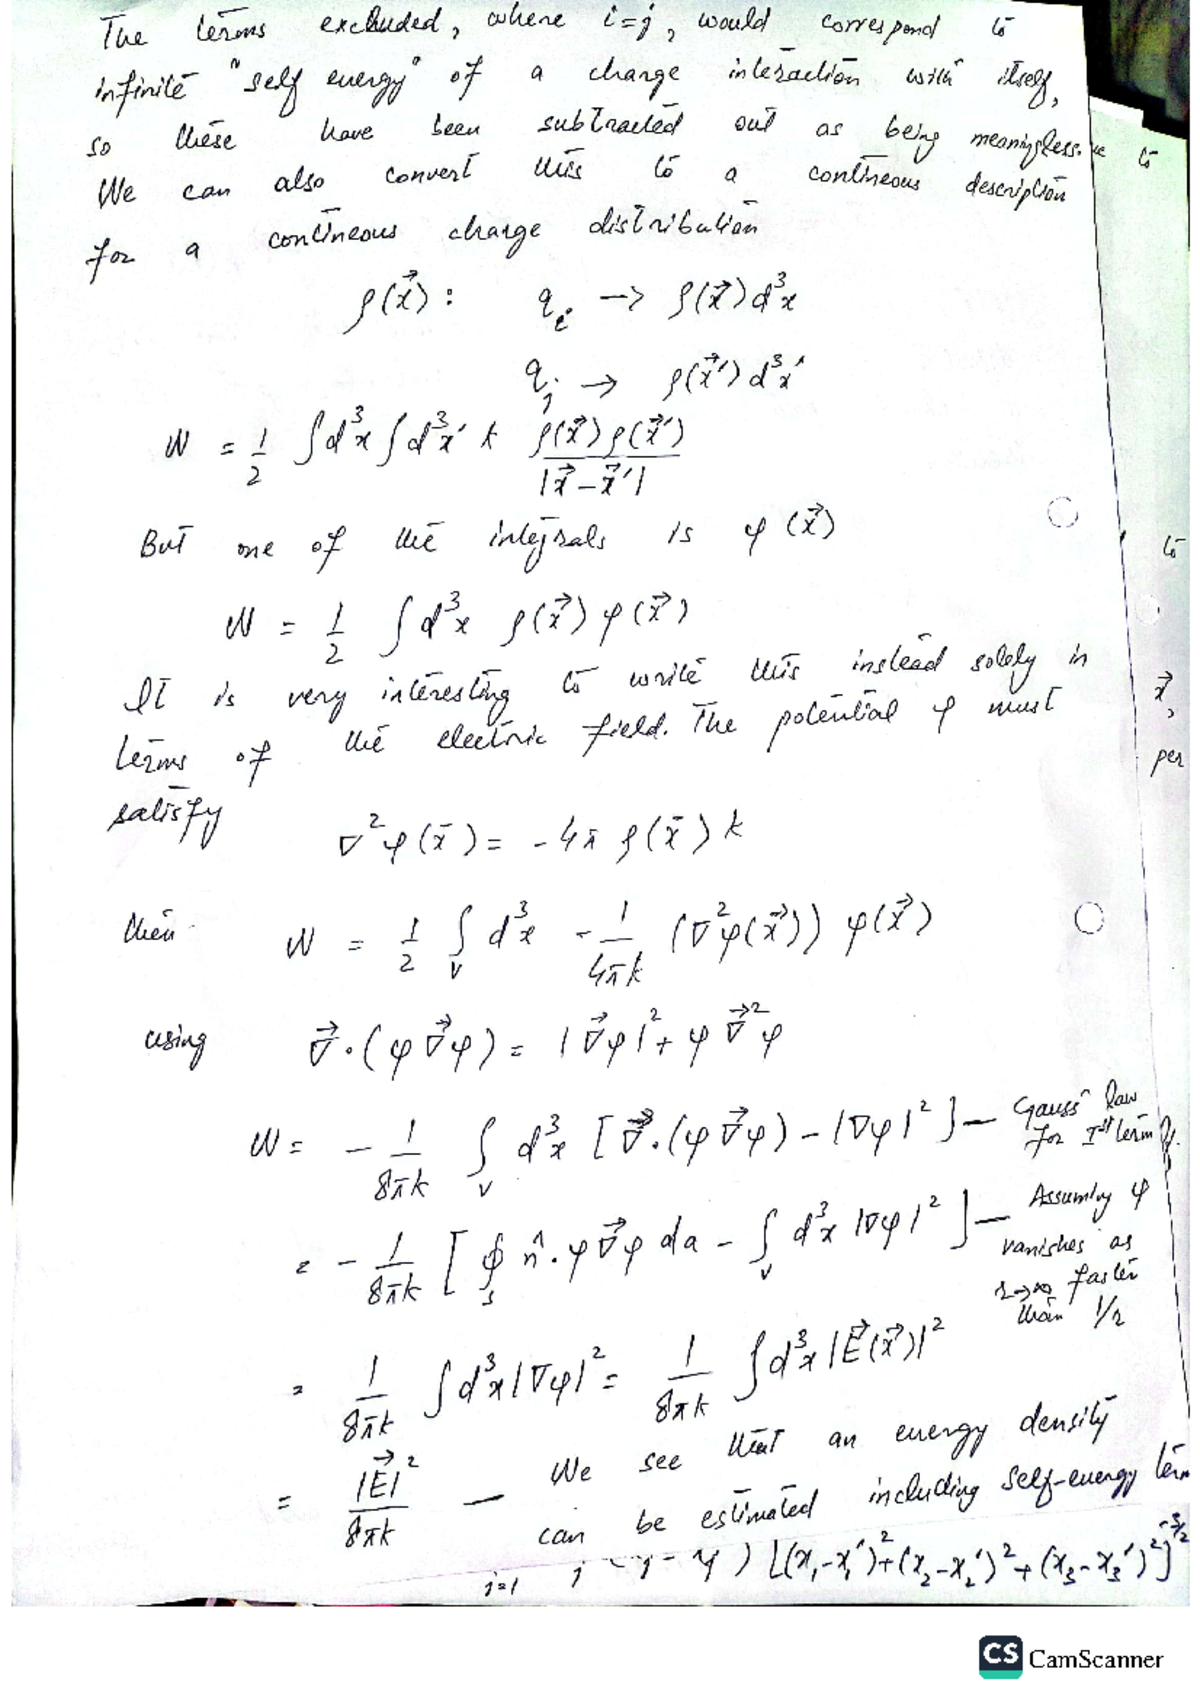 The terms excluded, where i=j, would correspond to
infinite "self energy" of a charge interaction with itself,
so these have been subtracted out as being meaningless.
We can also convert this to a contineous description
for a contineous charge distribution
ρ(x⃗): qᵢ → ρ(x⃗)d³x
qⱼ → ρ(x⃗′)d³x′
W = 1/2 ∫d³x ∫d³x′ k ρ(x⃗)ρ(x⃗′)/|x⃗−x⃗′|
But one of the integrals is φ(x⃗)
W = 1/2 ∫d³x ρ(x⃗)φ(x⃗)
It is very interesting to write this instead solely in
terms of the electric field. The potential φ must
satisfy
∇²φ(x̄) = −4π ρ(x̄)k
then W = 1/2 ∫ᵥ d³x −1/4πk (∇²φ(x⃗)) φ(x⃗)
using ∇⃗·(φ∇⃗φ) = |∇⃗φ|² + φ∇⃗²φ
W = −1/8πk ∫ᵥ d³x [∇⃗·(φ∇⃗φ) − |∇φ|²] — Gauss' law
for Iˢᵗ term
= −1/8πk [∮ₛ n̂·φ∇⃗φ da − ∫ᵥ d³x |∇φ|²] — Assuming φ
vanishes as
r→∞ faster
than 1/r
= 1/8πk ∫d³x|∇φ|² = 1/8πk ∫d³x|E⃗(x⃗)|²
= |E⃗|²/8πk — We see that an energy density
can be estimated including self-energy term
j=1 [(x₁−x₁′)²+(x₂−x₂′)²+(x₃−x₃′)²]^−3/2
to
to
x⃗,
per
CS CamScanner